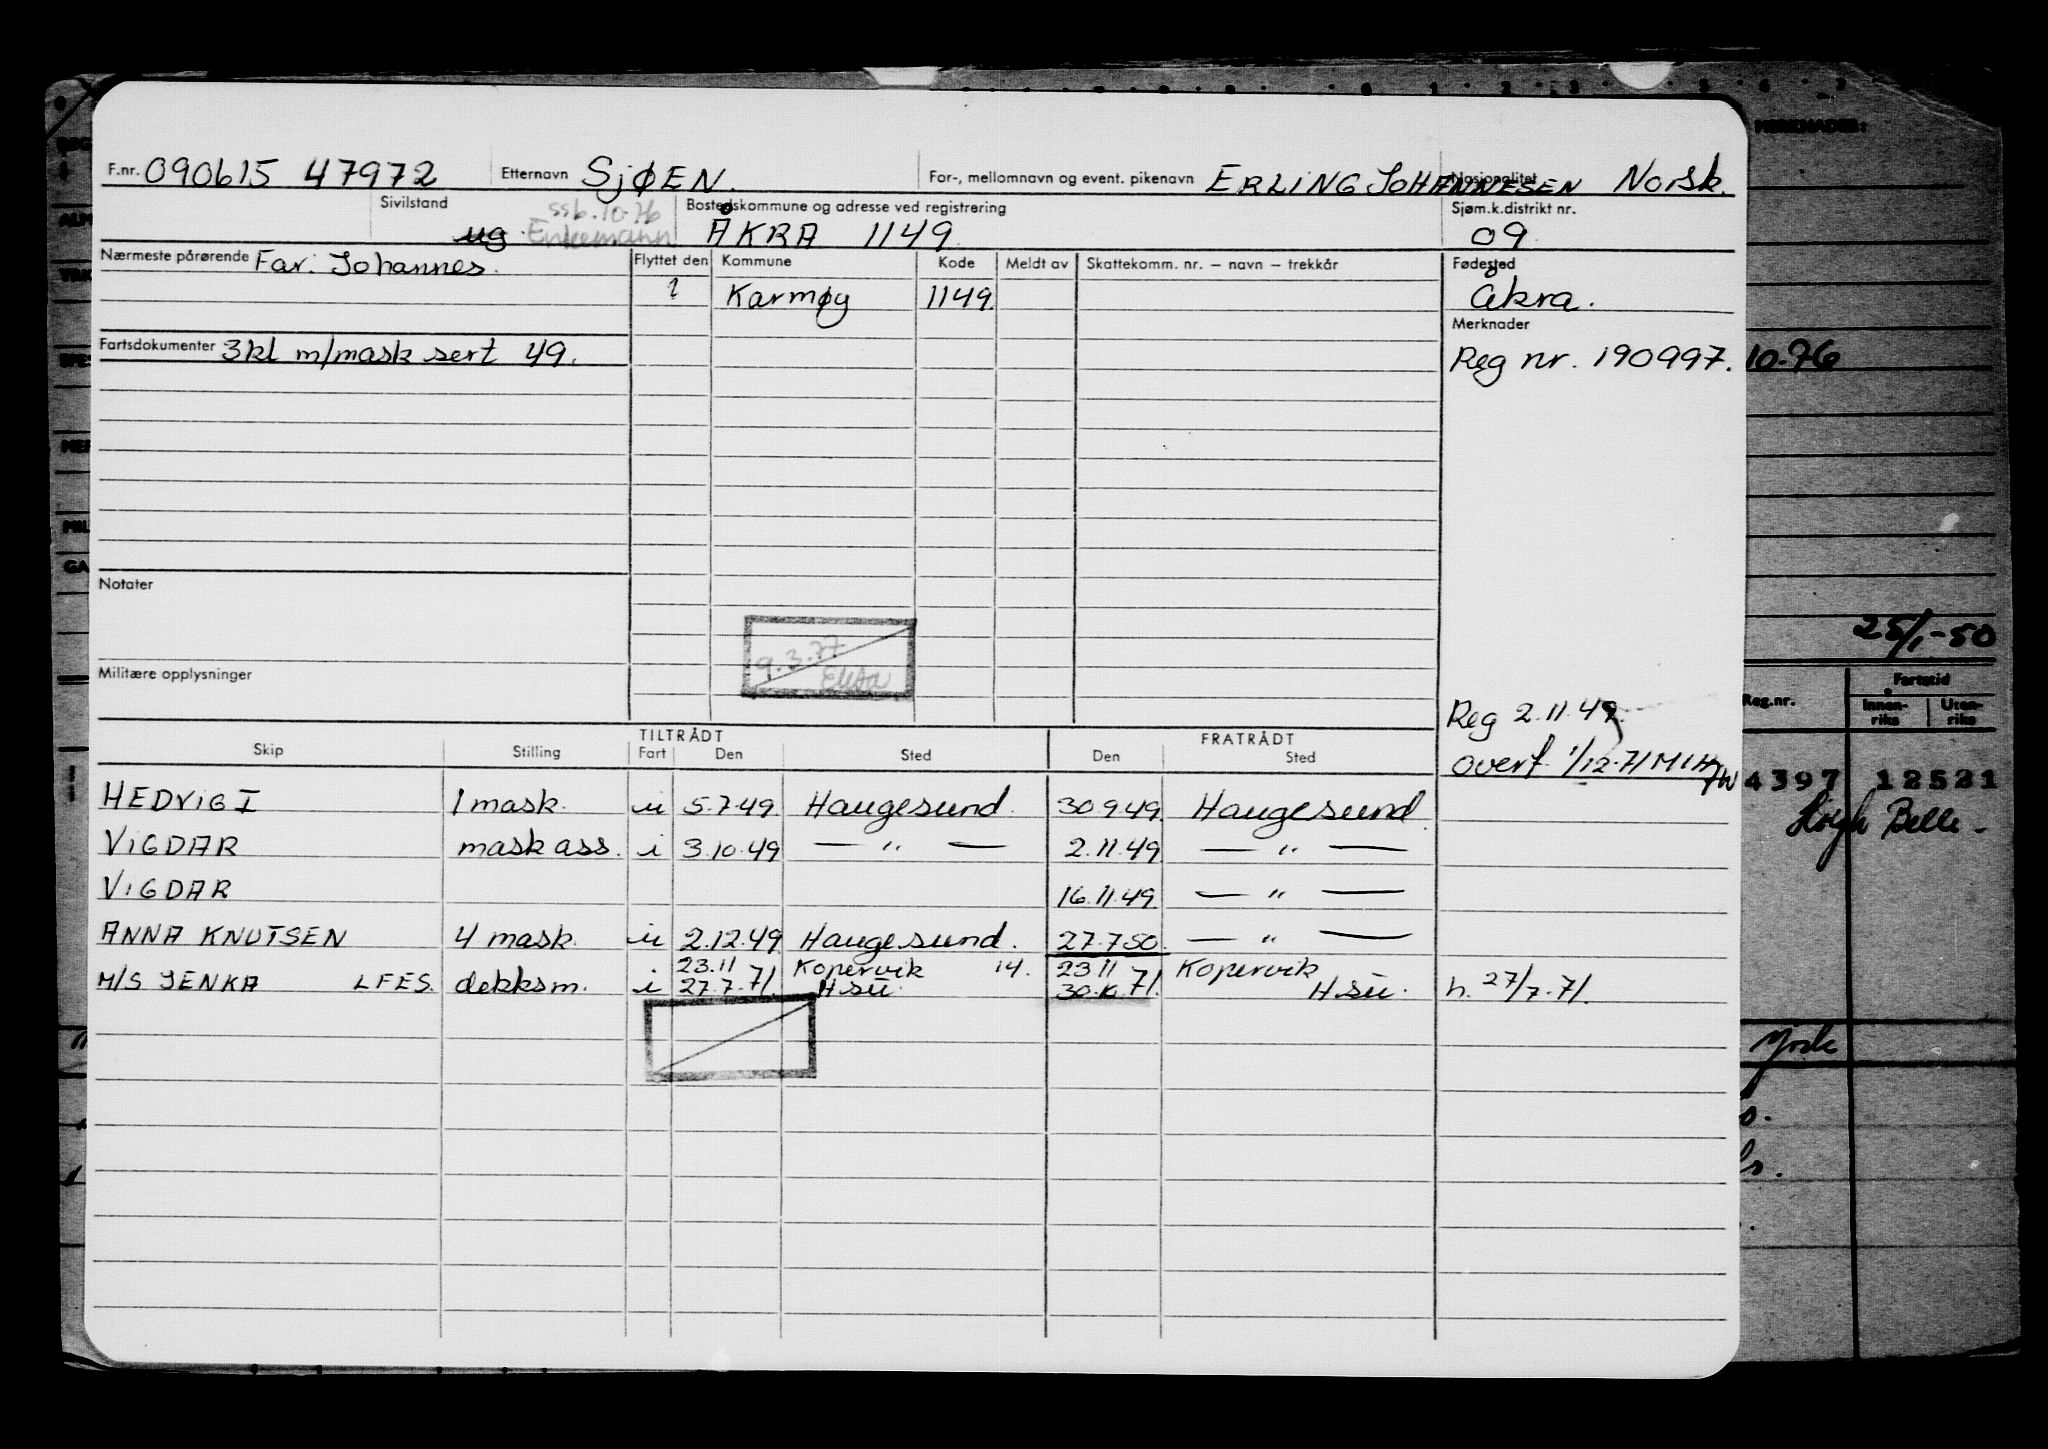 F.nr. 090615 47972 Etternavn SJØEN. For-, mellomnavn og event. pikenavn ERLING JOHANNESEN Nasjonalitet Norsk.
Sivilstand ug. ssb. 10-76 Enkemann Bostedskommune og adresse ved registrering ÅKRA 1149 Sjøm.k.distrikt nr. 09
Nærmeste pårørende Far: Johannes. Flyttet den Kommune Kode Meldt av Skattekomm. nr. – navn – trekkår Fødested
Karmøy 1149 Åkra.
Merknader
Fartsdokumenter 3kl m/mask sert 49. Reg nr. 190997. 10-76
Notater
25/1-50
9.3.77
Militære opplysninger
Reg 2.11.49
TILTRÅDT FRATRÅDT
Skip Stilling Fart Den Sted Den Sted
overf. 1/12-71
HEDVIG I 1 mask. u 5.7.49 Haugesund. 30.9.49 Haugesund
VIGDAR mask ass. i 3.10.49 — " — 2.11.49 — " —
VIGDAR 16.11.49 — " —
ANNA KNUTSEN 4 mask. u 2.12.49 Haugesund. 27.7.50. — " —
23.11 Kopervik 14. 23.11 Kopervik
M/S JENKA LFES dekksm. i 27.7.71. H.su. 30.10.71. H.su. h. 27/7.71.
MERKNADER:
Reg.nr. Fartstid
Innen-riks Uten-riks
4397 12521
Höegh Belle